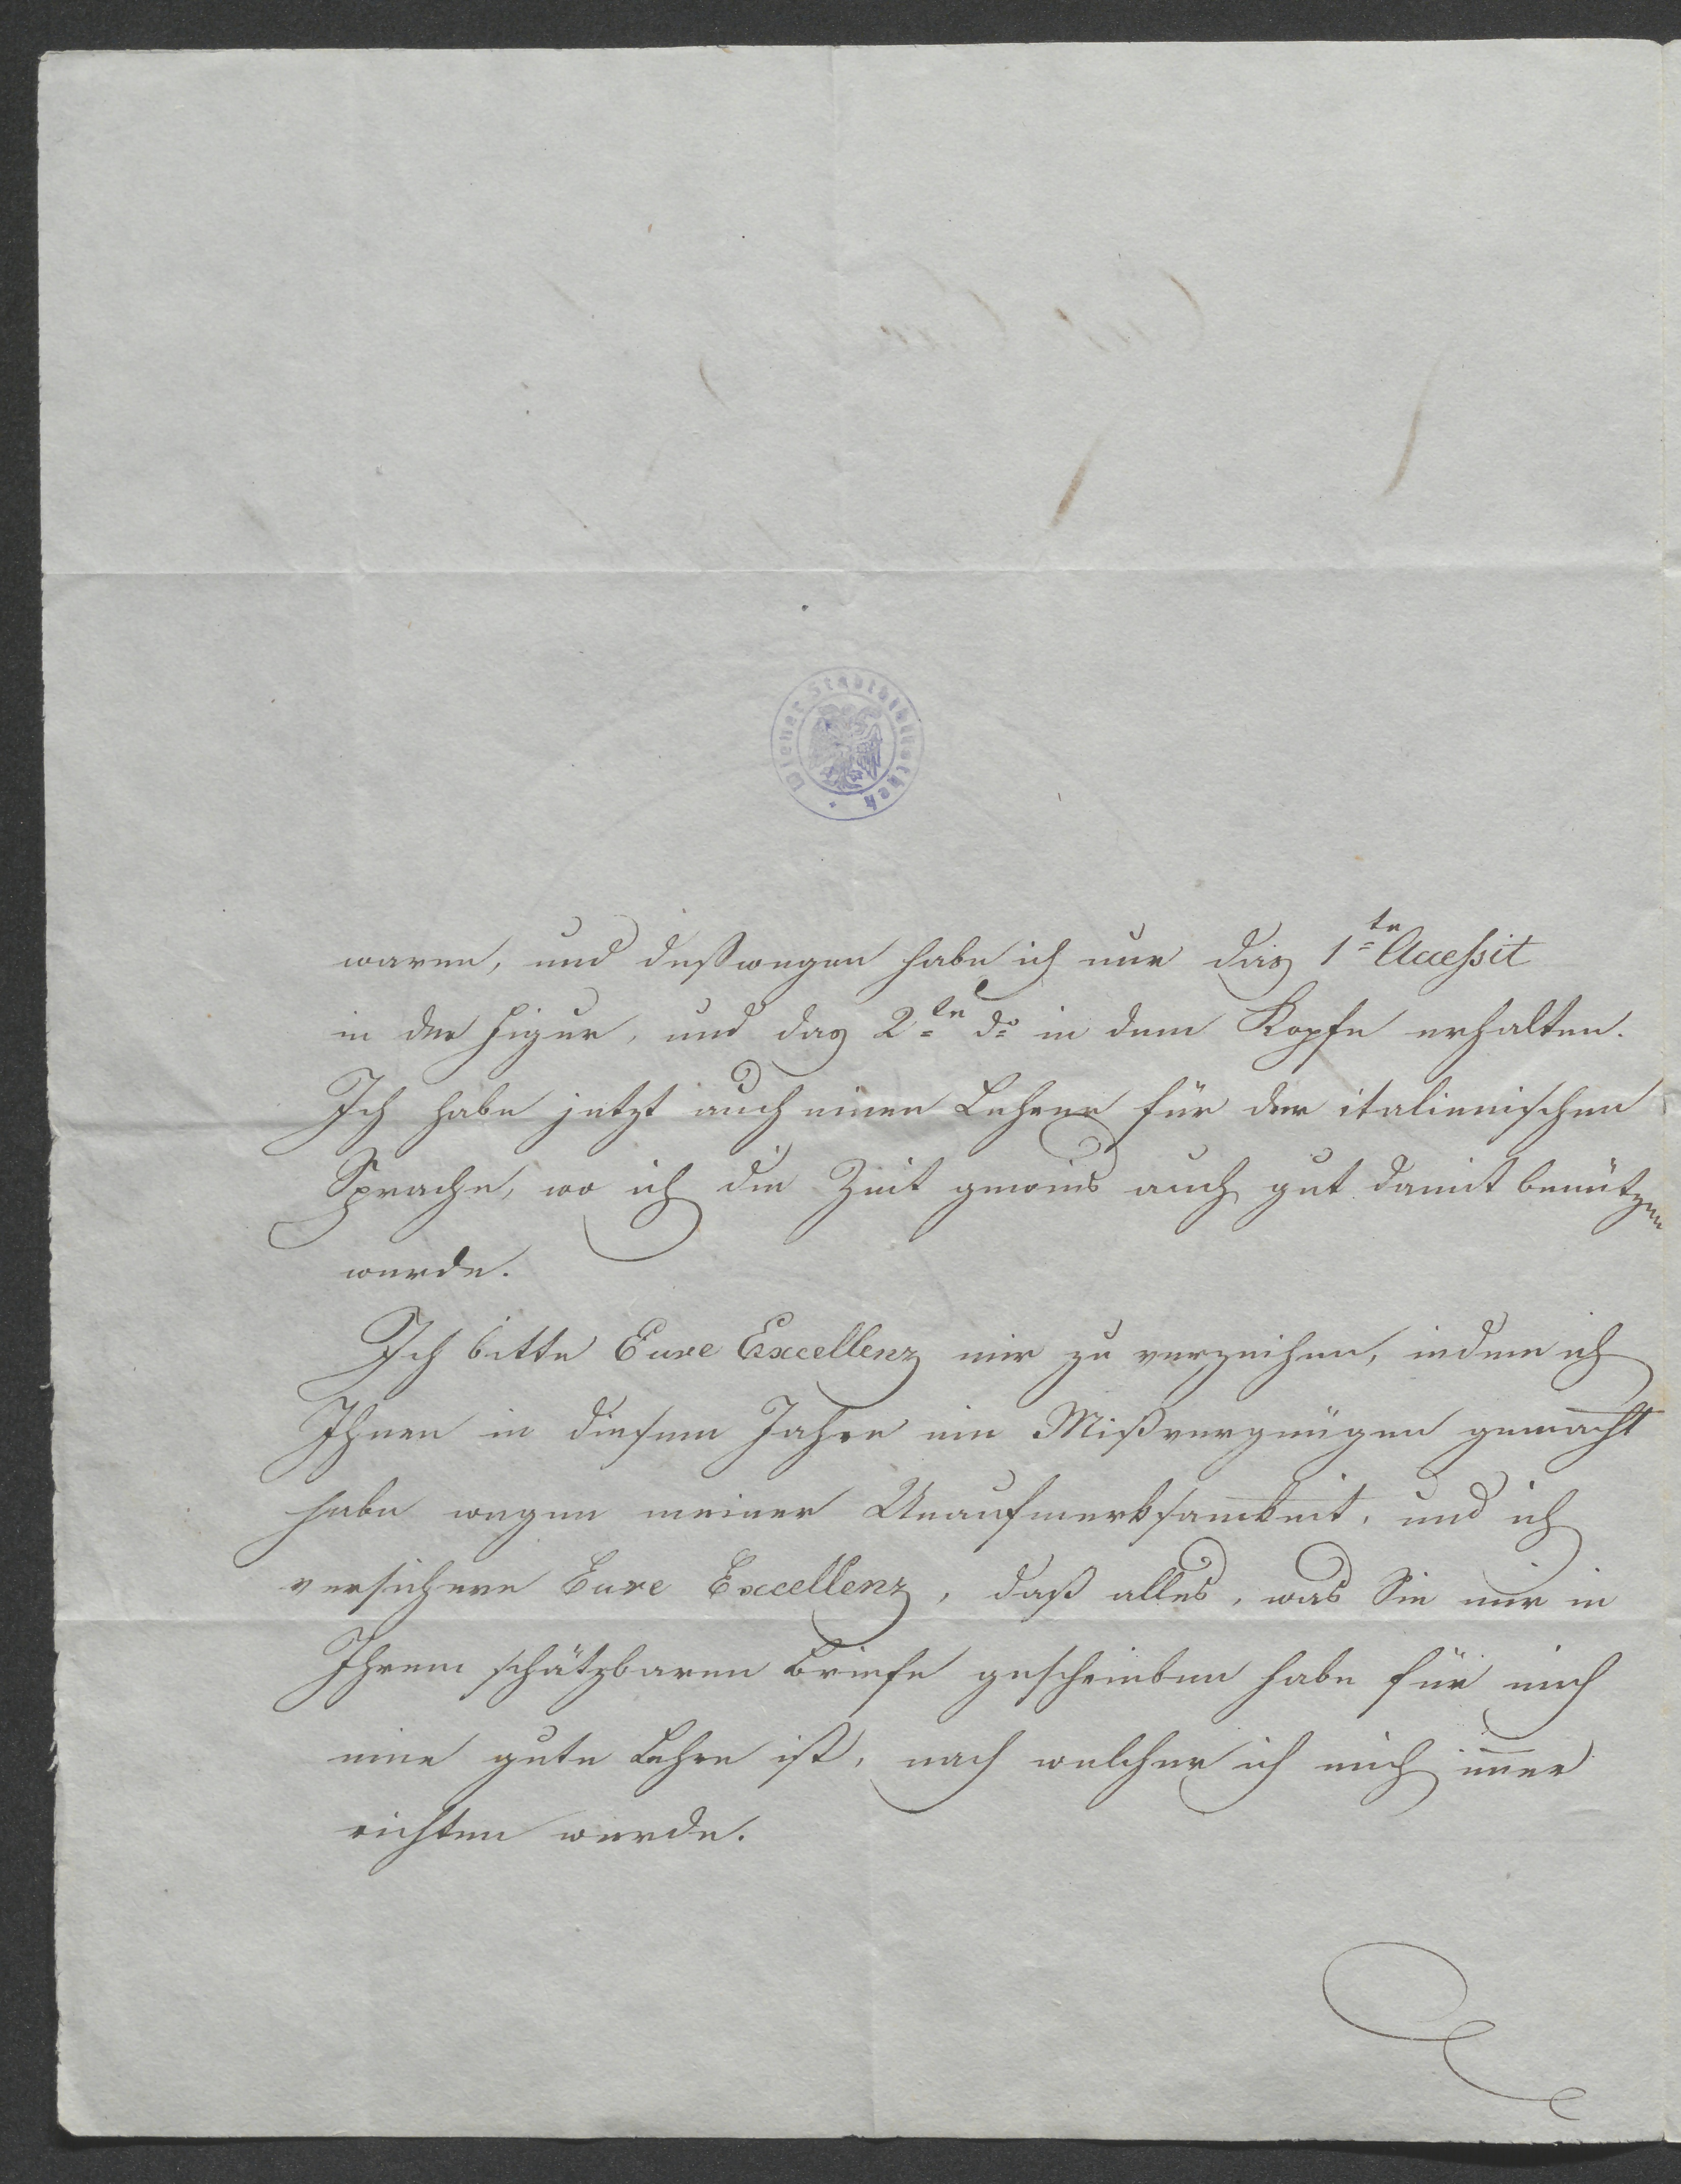 Wiener Stadtbibliothek
waren, und deßwegen habe ich nur das 1te Accessit
in der Figur, und das 2te do in dem Kopfe erhalten.
Ich habe jetzt auch einen Lehrer für der italienischen
Sprache, wo ich die Zeit gewies auch gut damit benützen
werde.
Ich bitte Eure Excellenz mir zu verzeihen, indem ich
Ihnen in diesem Jahre ein Mißvergnügen gemacht
habe wegen meiner Unaufmerksamkeit, und ich
versichere Eure Excellenz, daß alles, was Sie mir in
Ihrem schätzbaren Briefe geschrieben habe für mich
eine gute Lehre ist, nach welcher ich mich im̅er
richten werde.